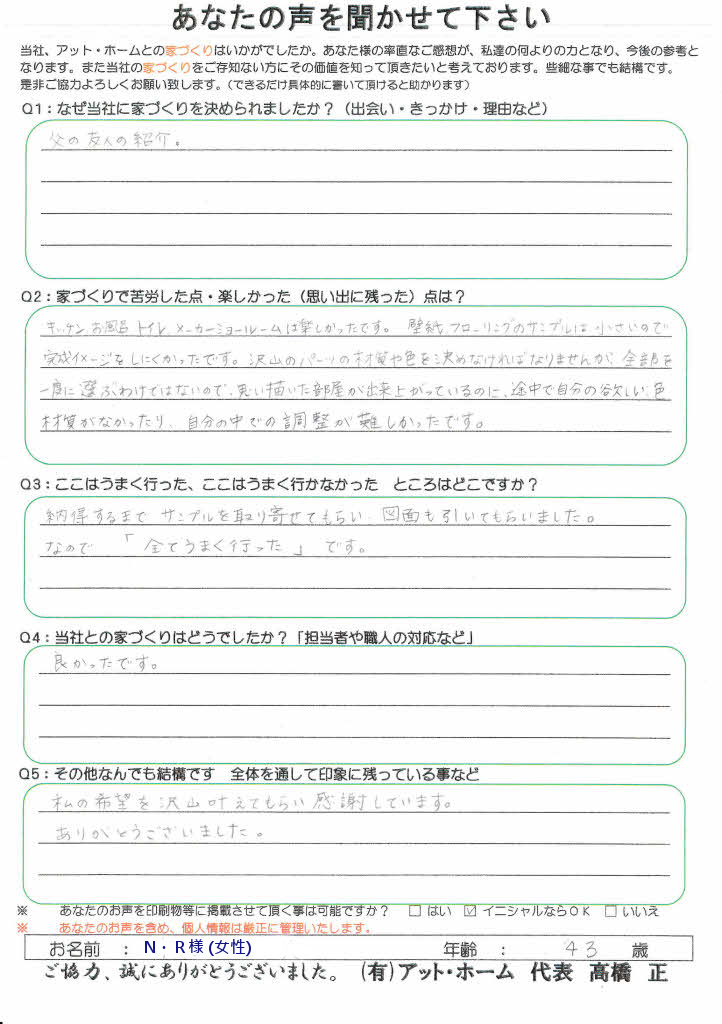 あなたの声を聞かせて下さい
当社、アット・ホームとの家づくりはいかがでしたか。あなた様の率直なご感想が、私達の何よりの力となり、今後の参考と
なります。また当社の家づくりをご存知ない方にその価値を知って頂きたいと考えております。些細な事でも結構です。
是非ご協力よろしくお願い致します。(できるだけ具体的に書いて頂けると助かります)
Q1:なぜ当社に家づくりを決められましたか?(出会い・きっかけ・理由など)
父の友人の紹介。
Q2:家づくりで苦労した点・楽しかった(思い出に残った)点は?
キッチン、お風呂、トイレ、メーカーショールームは楽しかったです。 壁紙、フローリングのサンプルは小さいので
完成イメージをしにくかったです。沢山のパーツの材質や色を決めなければなりませんが、全部を
一度に選ぶわけではないので、思い描いた部屋が出来上がっているのに、途中で自分の欲しい色
材質がなかったり、自分の中での調整が難しかったです。
Q3:ここはうまく行った、ここはうまく行かなかった ところはどこですか?
納得するまでサンプルを取り寄せてもらい、図面も引いてもらいました。
なので 「全てうまく行った」です。
Q4:当社との家づくりはどうでしたか?「担当者や職人の対応など」
良かったです。
Q5:その他なんでも結構です 全体を通して印象に残っている事など
私の希望を沢山叶えてもらい感謝しています。
ありがとうございました。
※ あなたのお声を印刷物等に掲載させて頂く事は可能ですか? □ はい ☑ イニシャルならOK □ いいえ
※ あなたのお声を含め、個人情報は厳正に管理いたします。
お名前 : N・R様(女性) 年齢 : 43 歳
ご協力、誠にありがとうございました。 (有)アット・ホーム 代表 髙橋 正